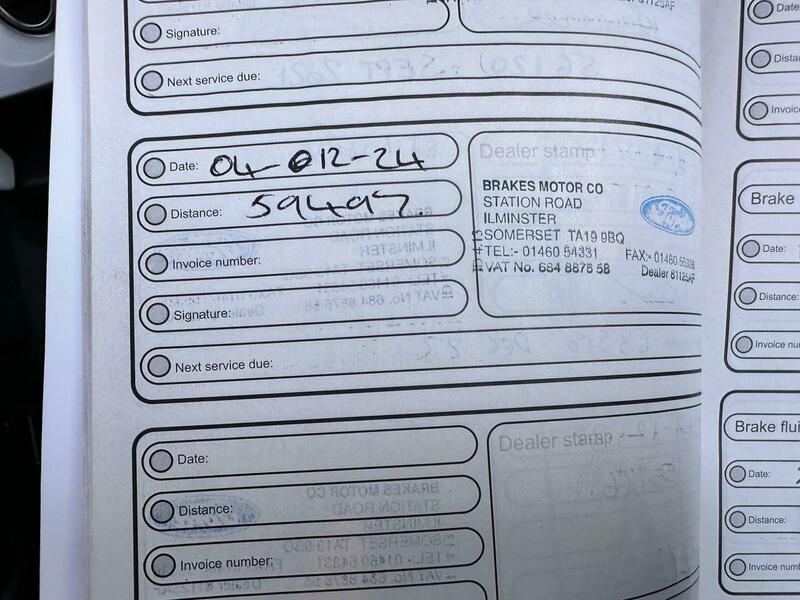 Signature:
Next service due:
Date: 04-012-24
Distance: 59497.
Invoice number:
Signature:
Next service due:
Dealer stamp
BRAKES MOTOR CO
STATION ROAD
ILMINSTER
SOMERSET TA19 9BQ
TEL:- 01460 54331 FAX:- 01460 55336
VAT No. 684 8876 58 Dealer 81125AF
Date:
Distance:
Invoice number:
Dealer stamp
Date:
Distance:
Invoice
Brake
Date:
Distance:
Invoice nu
Brake flui
Date:
Distance:
Invoice numb